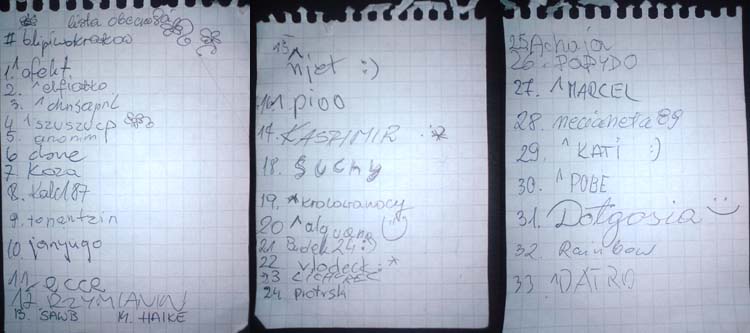 lista obecności
#blipiwokrakow
1. ofekt
2. ^elfiatko
3. ^chnsapril
4. ^szuszucp
5. anonim
6. done
7. Koza
8. Kald87
9. tonantzin
10. janyugo
11. ecce
12. RZYMIANIN
13. SAWB M. HAIKE
15. ^njet :)
16. pioo
17. KASZMIR
18. Suchy
19. ^krolowanocy
20 ^alguana
21. Budek24 :)
22 vlodeck :*
23
24. piotrsk
25 Achaja
26. POPYDO
27. ^MARCEL
28. necianeta89
29. ^KATI :)
30. ^POBE
31. Dotgosia
32. Rainbow
33. DATRO